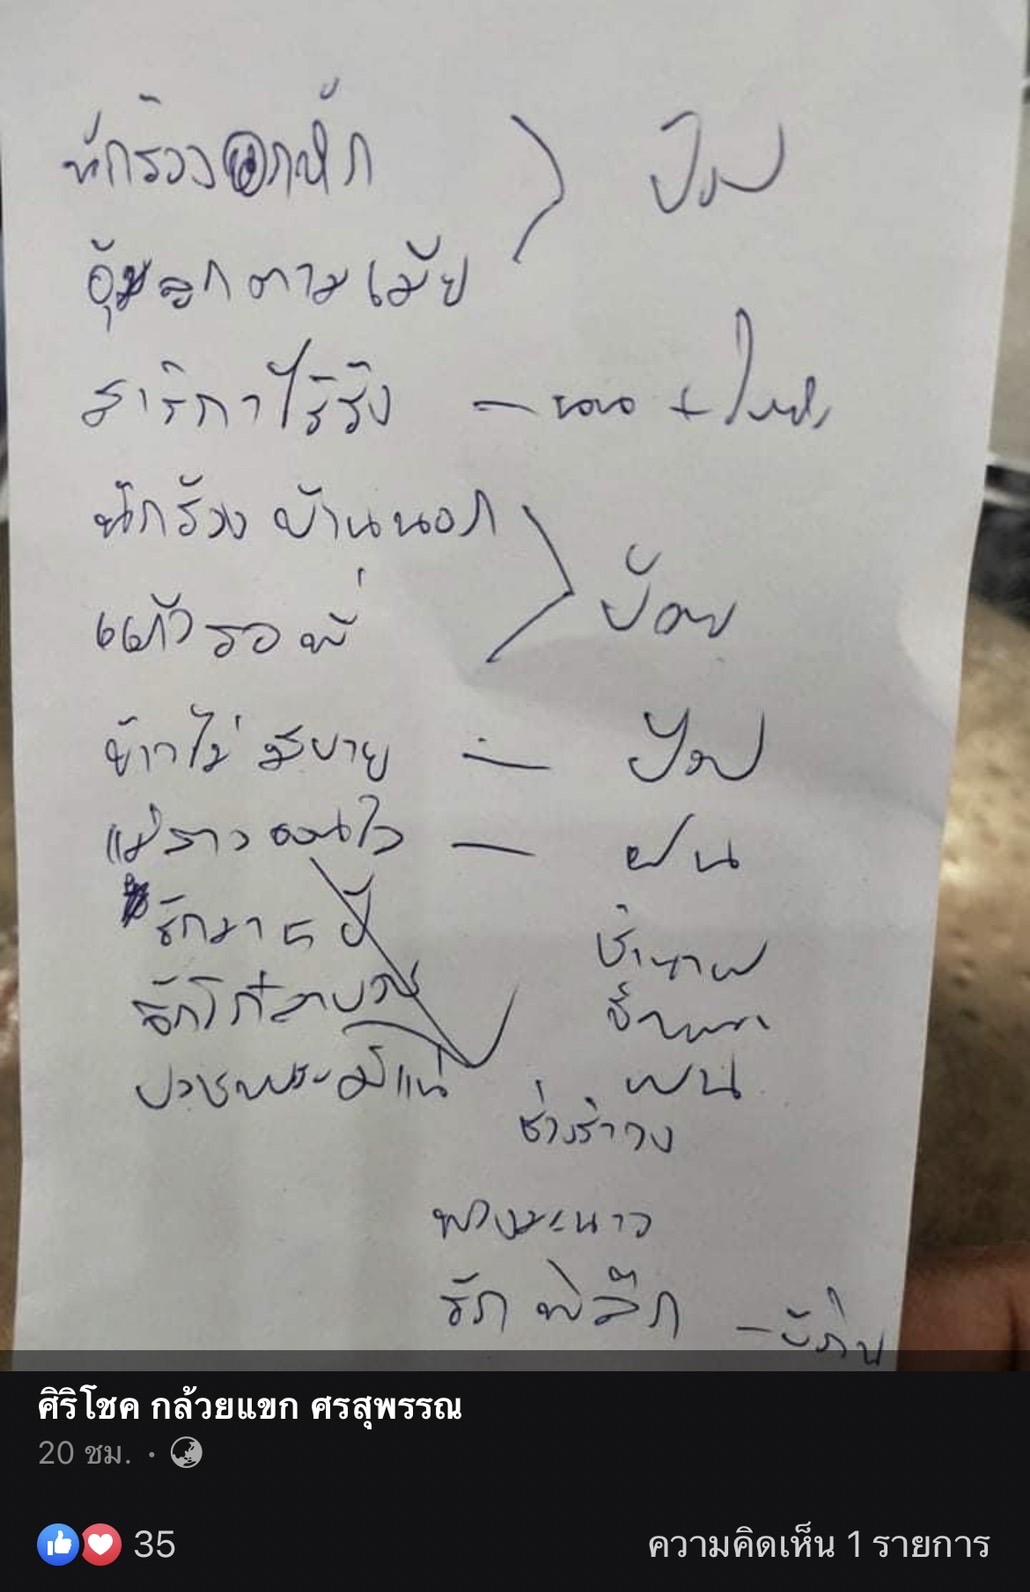 นักร้องอกหัก
ปัม
อุ้มลูกตามเมีย
สาริกาไร้รัง –
นักร้องบ้านนอก
ป้อม
แก้วรอพี่
ข้าวไม่มีขาย – ปัม
แม่สาวอวนใจ – ฝน
รักมา 5 ปี
บวชพระมีแน่
ฝน
ช่างรำวง
พวงมะนาว
รักพิลึก –
ศิริโชค กล้วยแขก ศรสุพรรณ
20 ชม. ·
35 ความคิดเห็น 1 รายการ